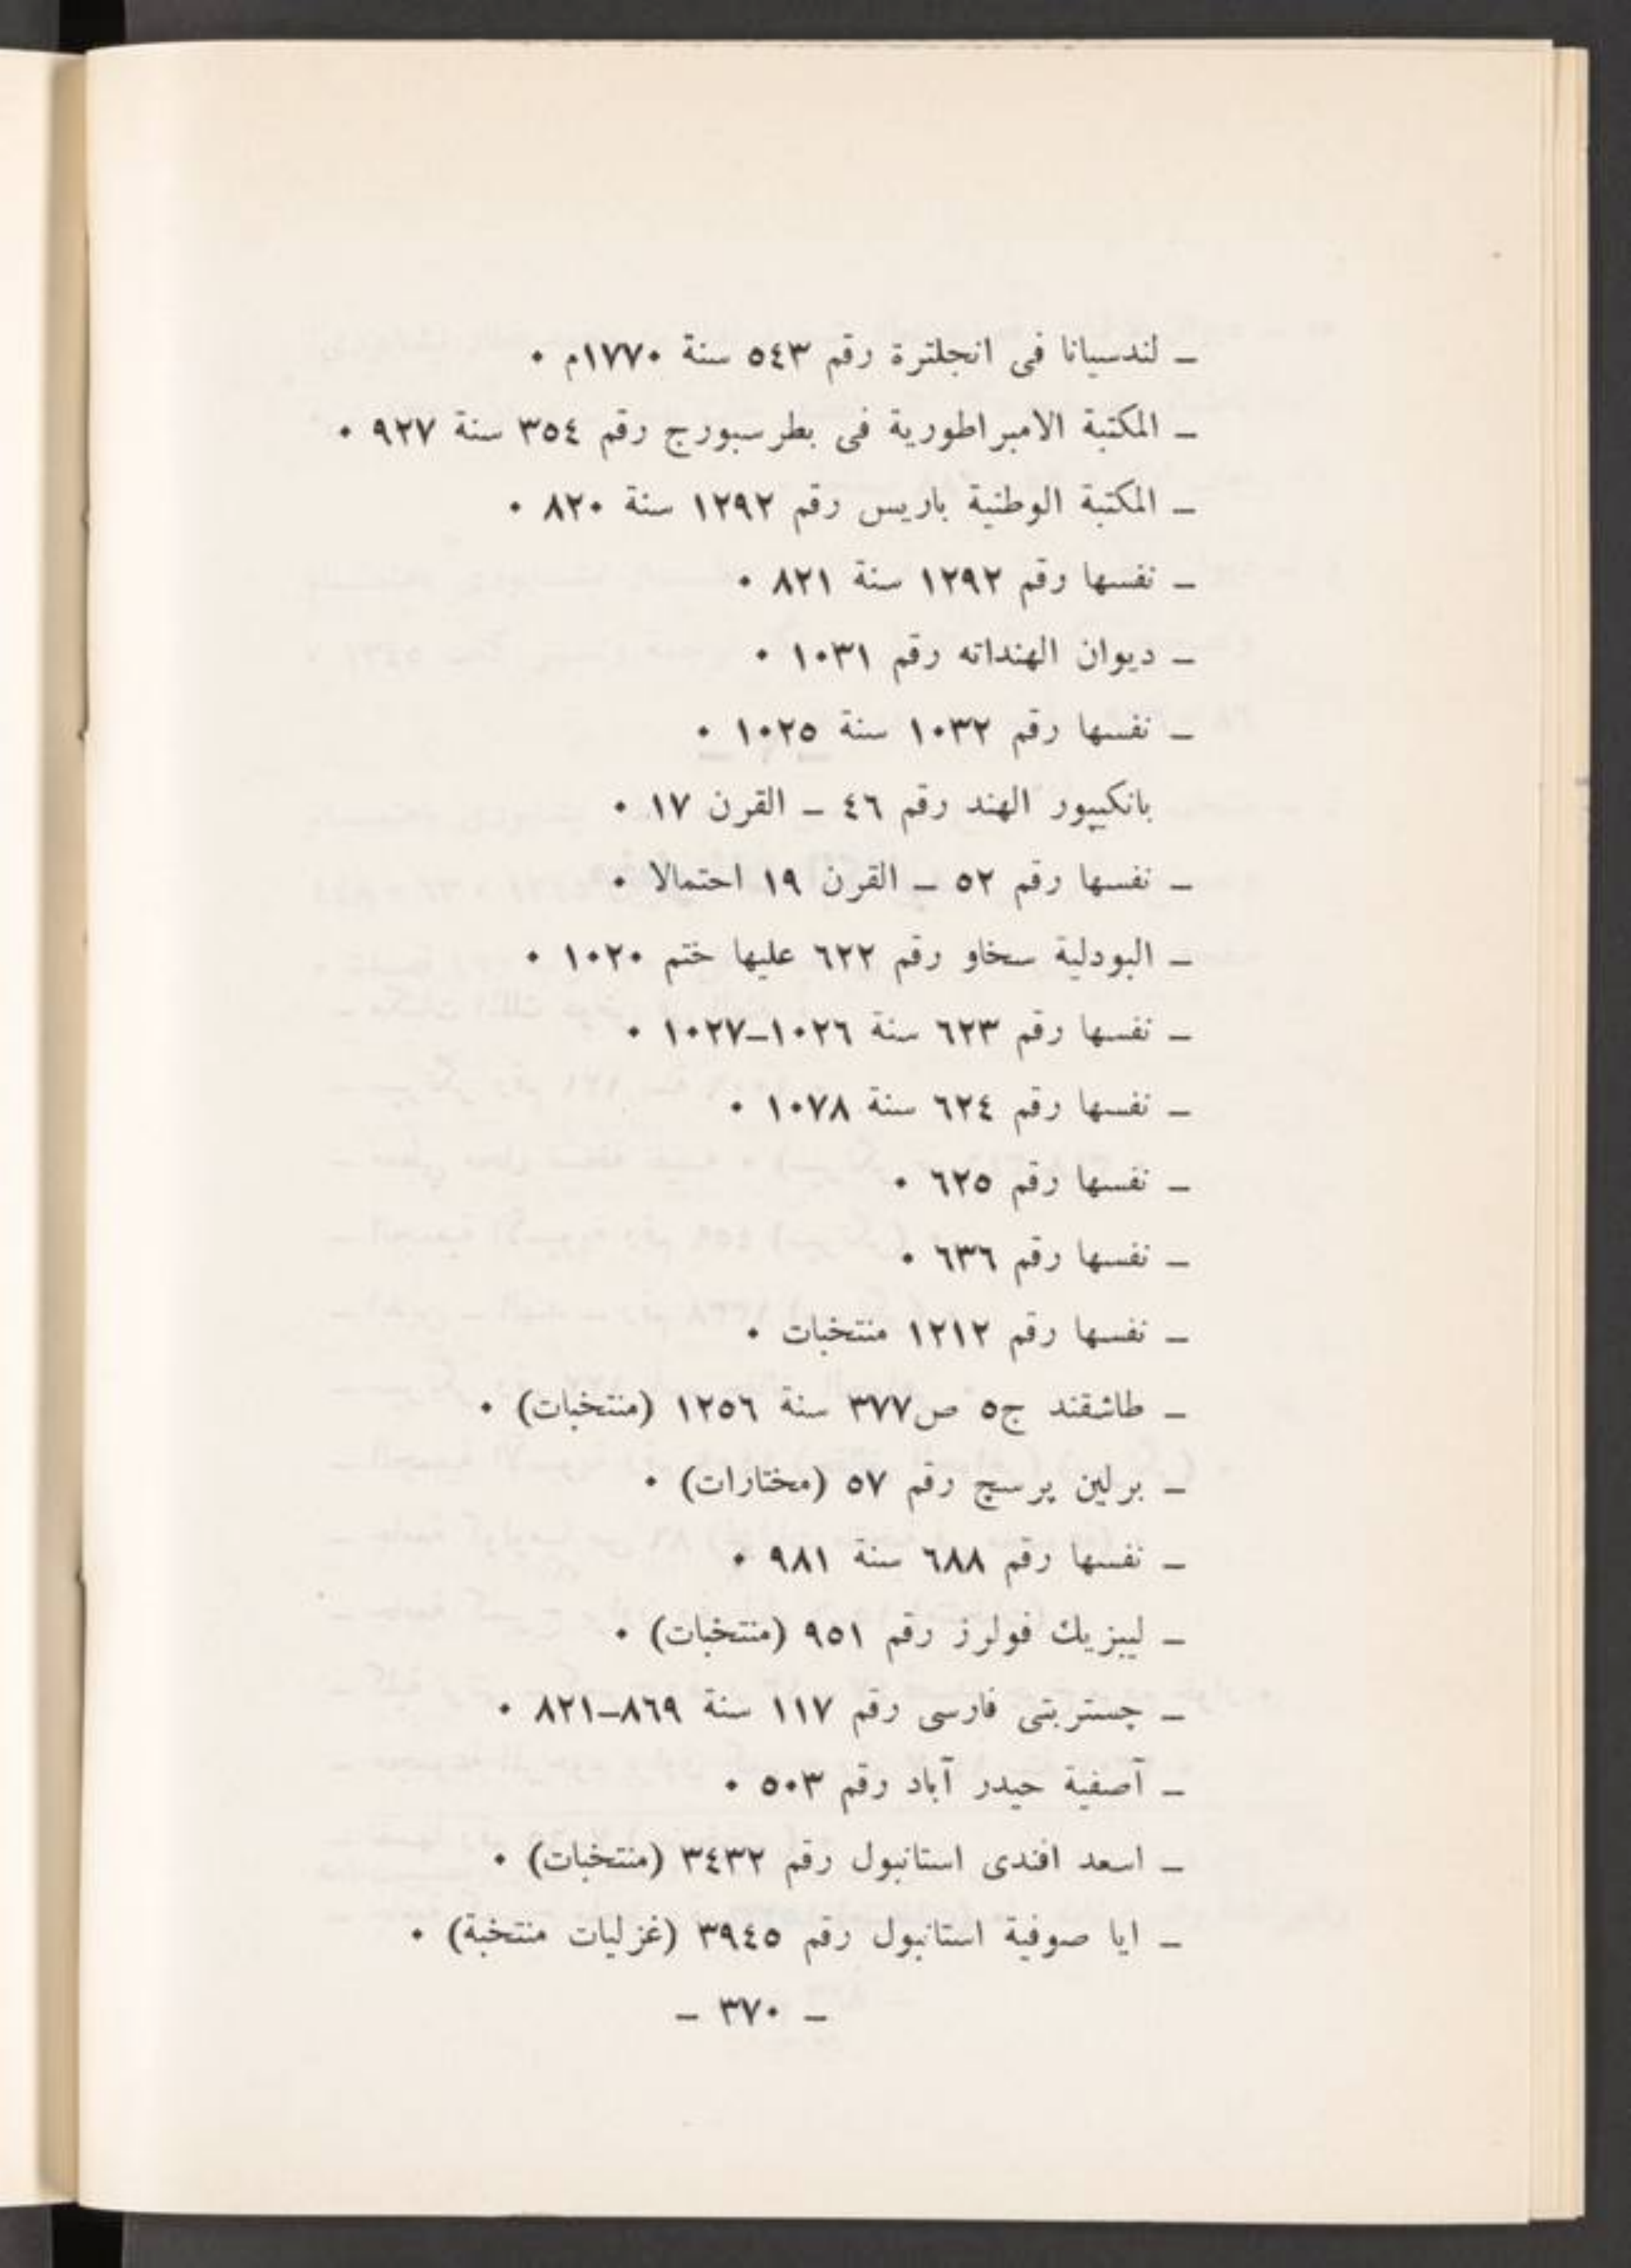 ـ لندسيانا فى انجلترة رقم ٥٤٣ سنة ١٧٧٠م ٠
ـ المكتبة الامبراطورية فى بطرسبورج رقم ٣٥٤ سنة ٩٢٧ ٠
ـ المكتبة الوطنية باريس رقم ١٢٩٢ سنة ٨٢٠ ٠
ـ نفسها رقم ١٢٩٢ سنة ٨٢١ ٠
ـ ديوان الهنداته رقم ١٠٣١ ٠
ـ نفسها رقم ١٠٣٢ سنة ١٠٢٥ ٠
بانكيپور الهند رقم ٤٦ ـ القرن ١٧ ٠
ـ نفسها رقم ٥٢ ـ القرن ١٩ احتمالا ٠
ـ البودلية سخاو رقم ٦٢٢ عليها ختم ١٠٢٠ ٠
ـ نفسها رقم ٦٢٣ سنة ١٠٢٦ـ١٠٢٧ ٠
ـ نفسها رقم ٦٢٤ سنة ١٠٧٨ ٠
ـ نفسها رقم ٦٢٥ ٠
ـ نفسها رقم ٦٣٦ ٠
ـ نفسها رقم ١٢١٢ منتخبات ٠
ـ طاشقند ج٥ ص٣٧٧ سنة ١٢٥٦ (منتخبات) ٠
ـ برلين پرسج رقم ٥٧ (مختارات) ٠
ـ نفسها رقم ٦٨٨ سنة ٩٨١ ٠
ـ ليبزيك فولرز رقم ٩٥١ (منتخبات) ٠
ـ جستربتى فارسى رقم ١١٧ سنة ٨٦٩ـ٨٢١ ٠
ـ آصفية حيدر آباد رقم ٥٠٣ ٠
ـ اسعد افندى استانبول رقم ٣٤٣٢ (منتخبات) ٠
ـ ايا صوفية استانبول رقم ٣٩٤٥ (غزليات منتخبة) ٠
ـ ٣٧٠ ـ